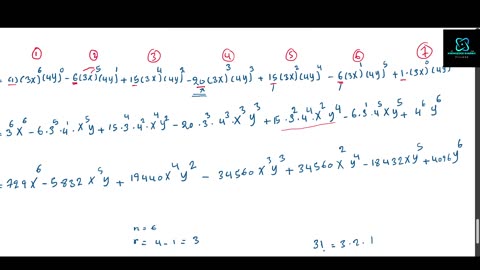 ① ② ③ ④ ⑤ ⑥ ⑦
= (1)(3x)⁶(4y)⁰ - 6(3x)⁵(4y)¹ + 15(3x)⁴(4y)² - 20(3x)³(4y)³ + 15(3x)²(4y)⁴ - 6(3x)¹(4y)⁵ + 1.(3x)⁰(4y)
= 3⁶x⁶ - 6.3⁵.4¹.x⁵y + 15.3⁴.4².x⁴y² - 20.3³.4³.x³y³ + 15.3².4⁴.x²y⁴ - 6.3¹.4⁵xy⁵ + 4⁶y⁶
= 729x⁶ - 5832x⁵y + 19440x⁴y² - 34560x³y³ + 34560x²y⁴ - 18432xy⁵ + 4096y⁶
n = 6
r = 4-1 = 3
3! = 3.2.1